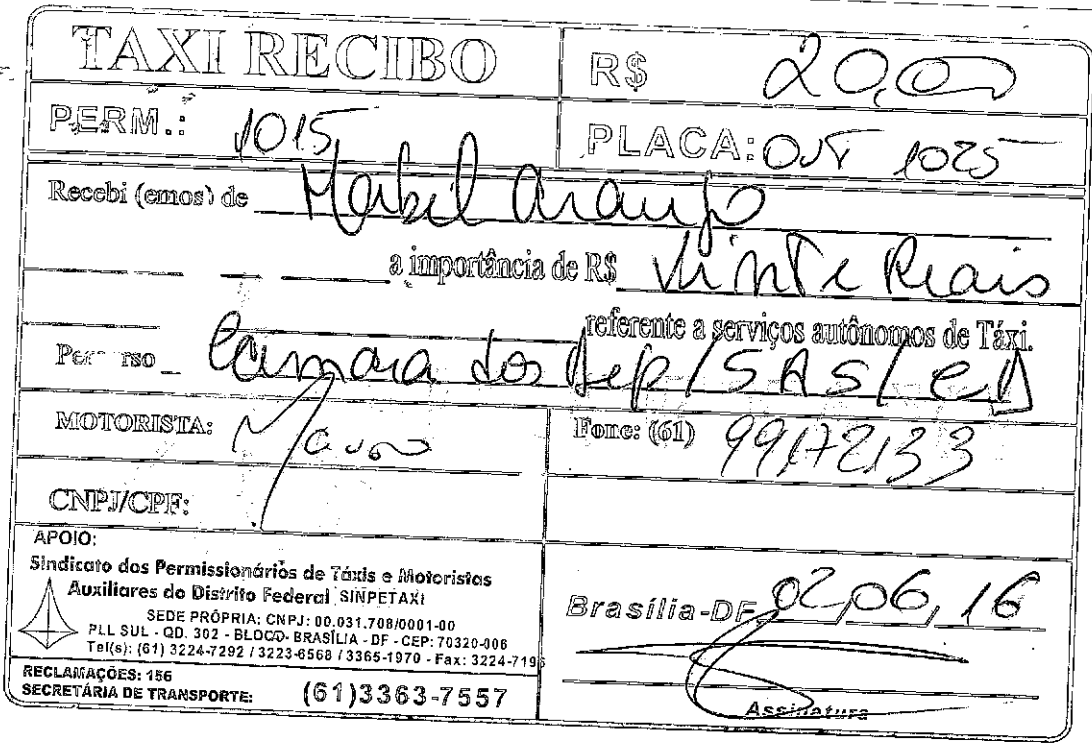 TAXI RECIBO R$ 20,00
PERM.: 1015 PLACA: OVT 1025
Recebi (emos) de Mabel Araujo
a importância de R$ Vinte Reais
referente a serviços autônomos de Táxi.
Percurso Camara dos Dep/SAS/CD
MOTORISTA: Mauro Fone: (61) 99172133
CNPJ/CPF:
APOIO:
Sindicato dos Permissionários de Táxis e Motoristas
Auxiliares do Distrito Federal SINPETAXI
SEDE PRÓPRIA: CNPJ: 00.031.708/0001-00
PLL SUL - QD. 302 - BLOCO- BRASÍLIA - DF - CEP: 70320-006
Tel(s): (61) 3224-7292 / 3223-6568 / 3365-1970 - Fax: 3224-7196
Brasília-DF 02,06,16
RECLAMAÇÕES: 156
SECRETÁRIA DE TRANSPORTE: (61)3363-7557
Assinatura